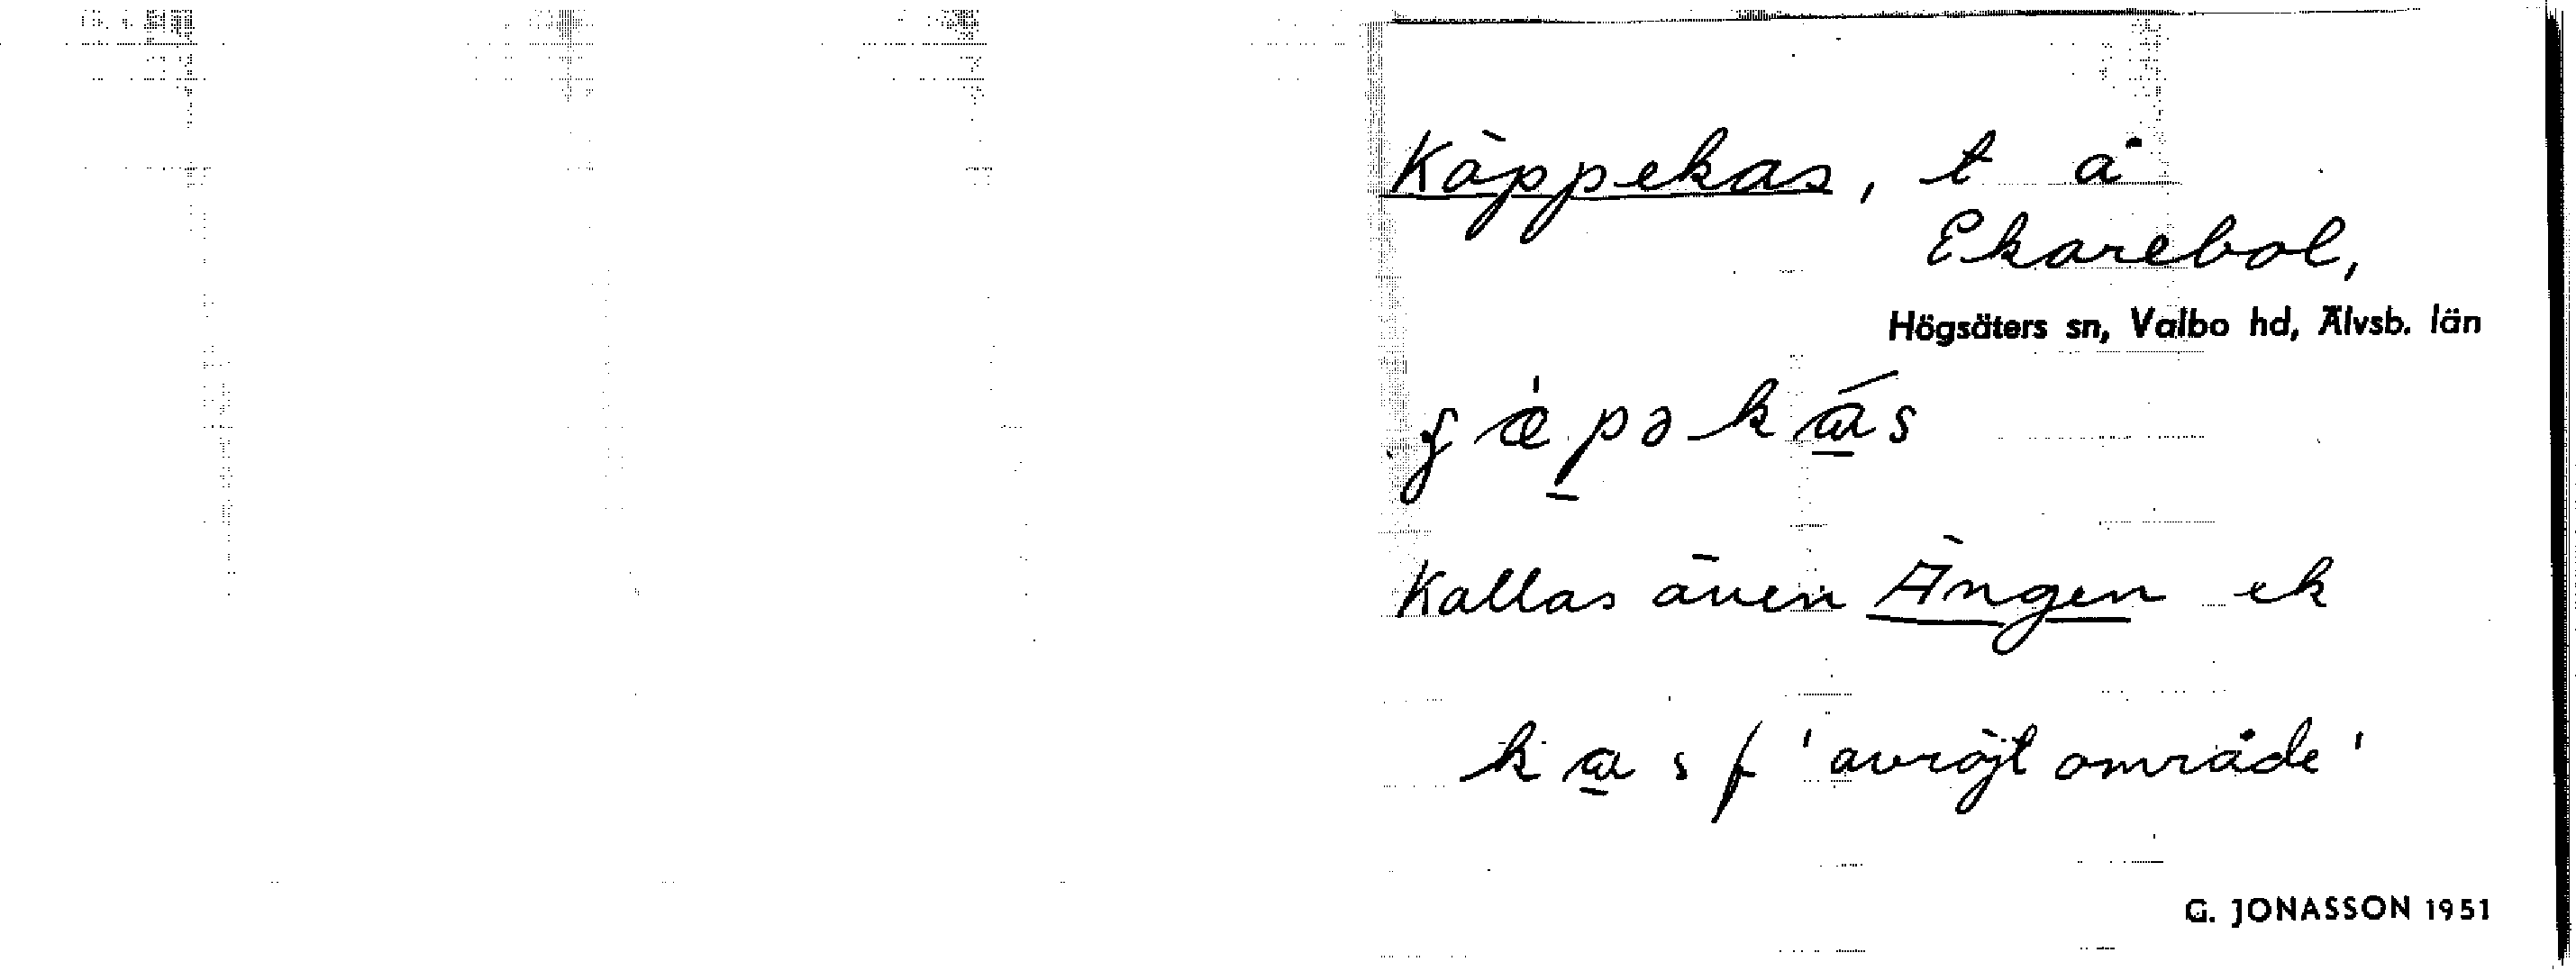 Käppekas, t å
Ekarebol,
Högsäters sn, Valbo hd, Älvsb. län
Kallas även Ängen ek
kas f 'avröjt område'
G. JONASSON 1951